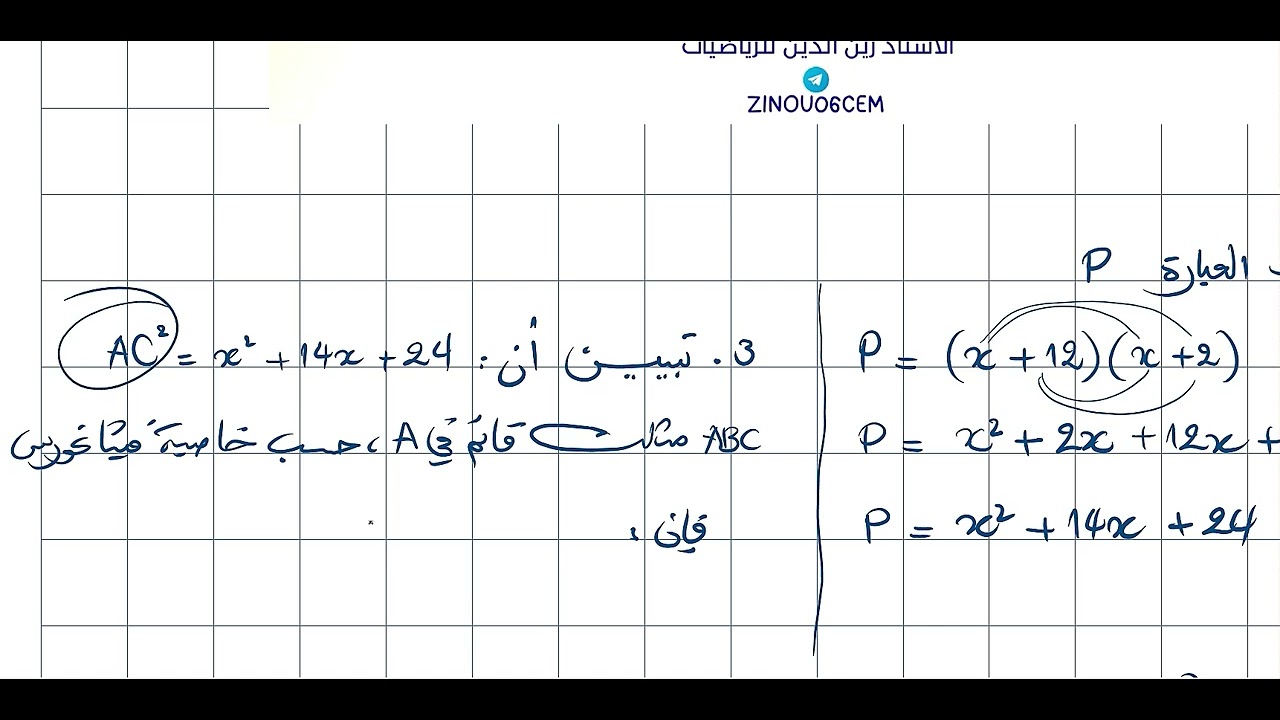 الأستاذ زين الدين للرياضيات
ZINOU06CEM
العبارة P
P = (x + 12)(x + 2)
P = x² + 2x + 12x +
P = x² + 14x + 24
3. تبيين أن: AC² = x² + 14x + 24
ABC مثلث قائم في A، حسب خاصية فيثاغورس
فإن: